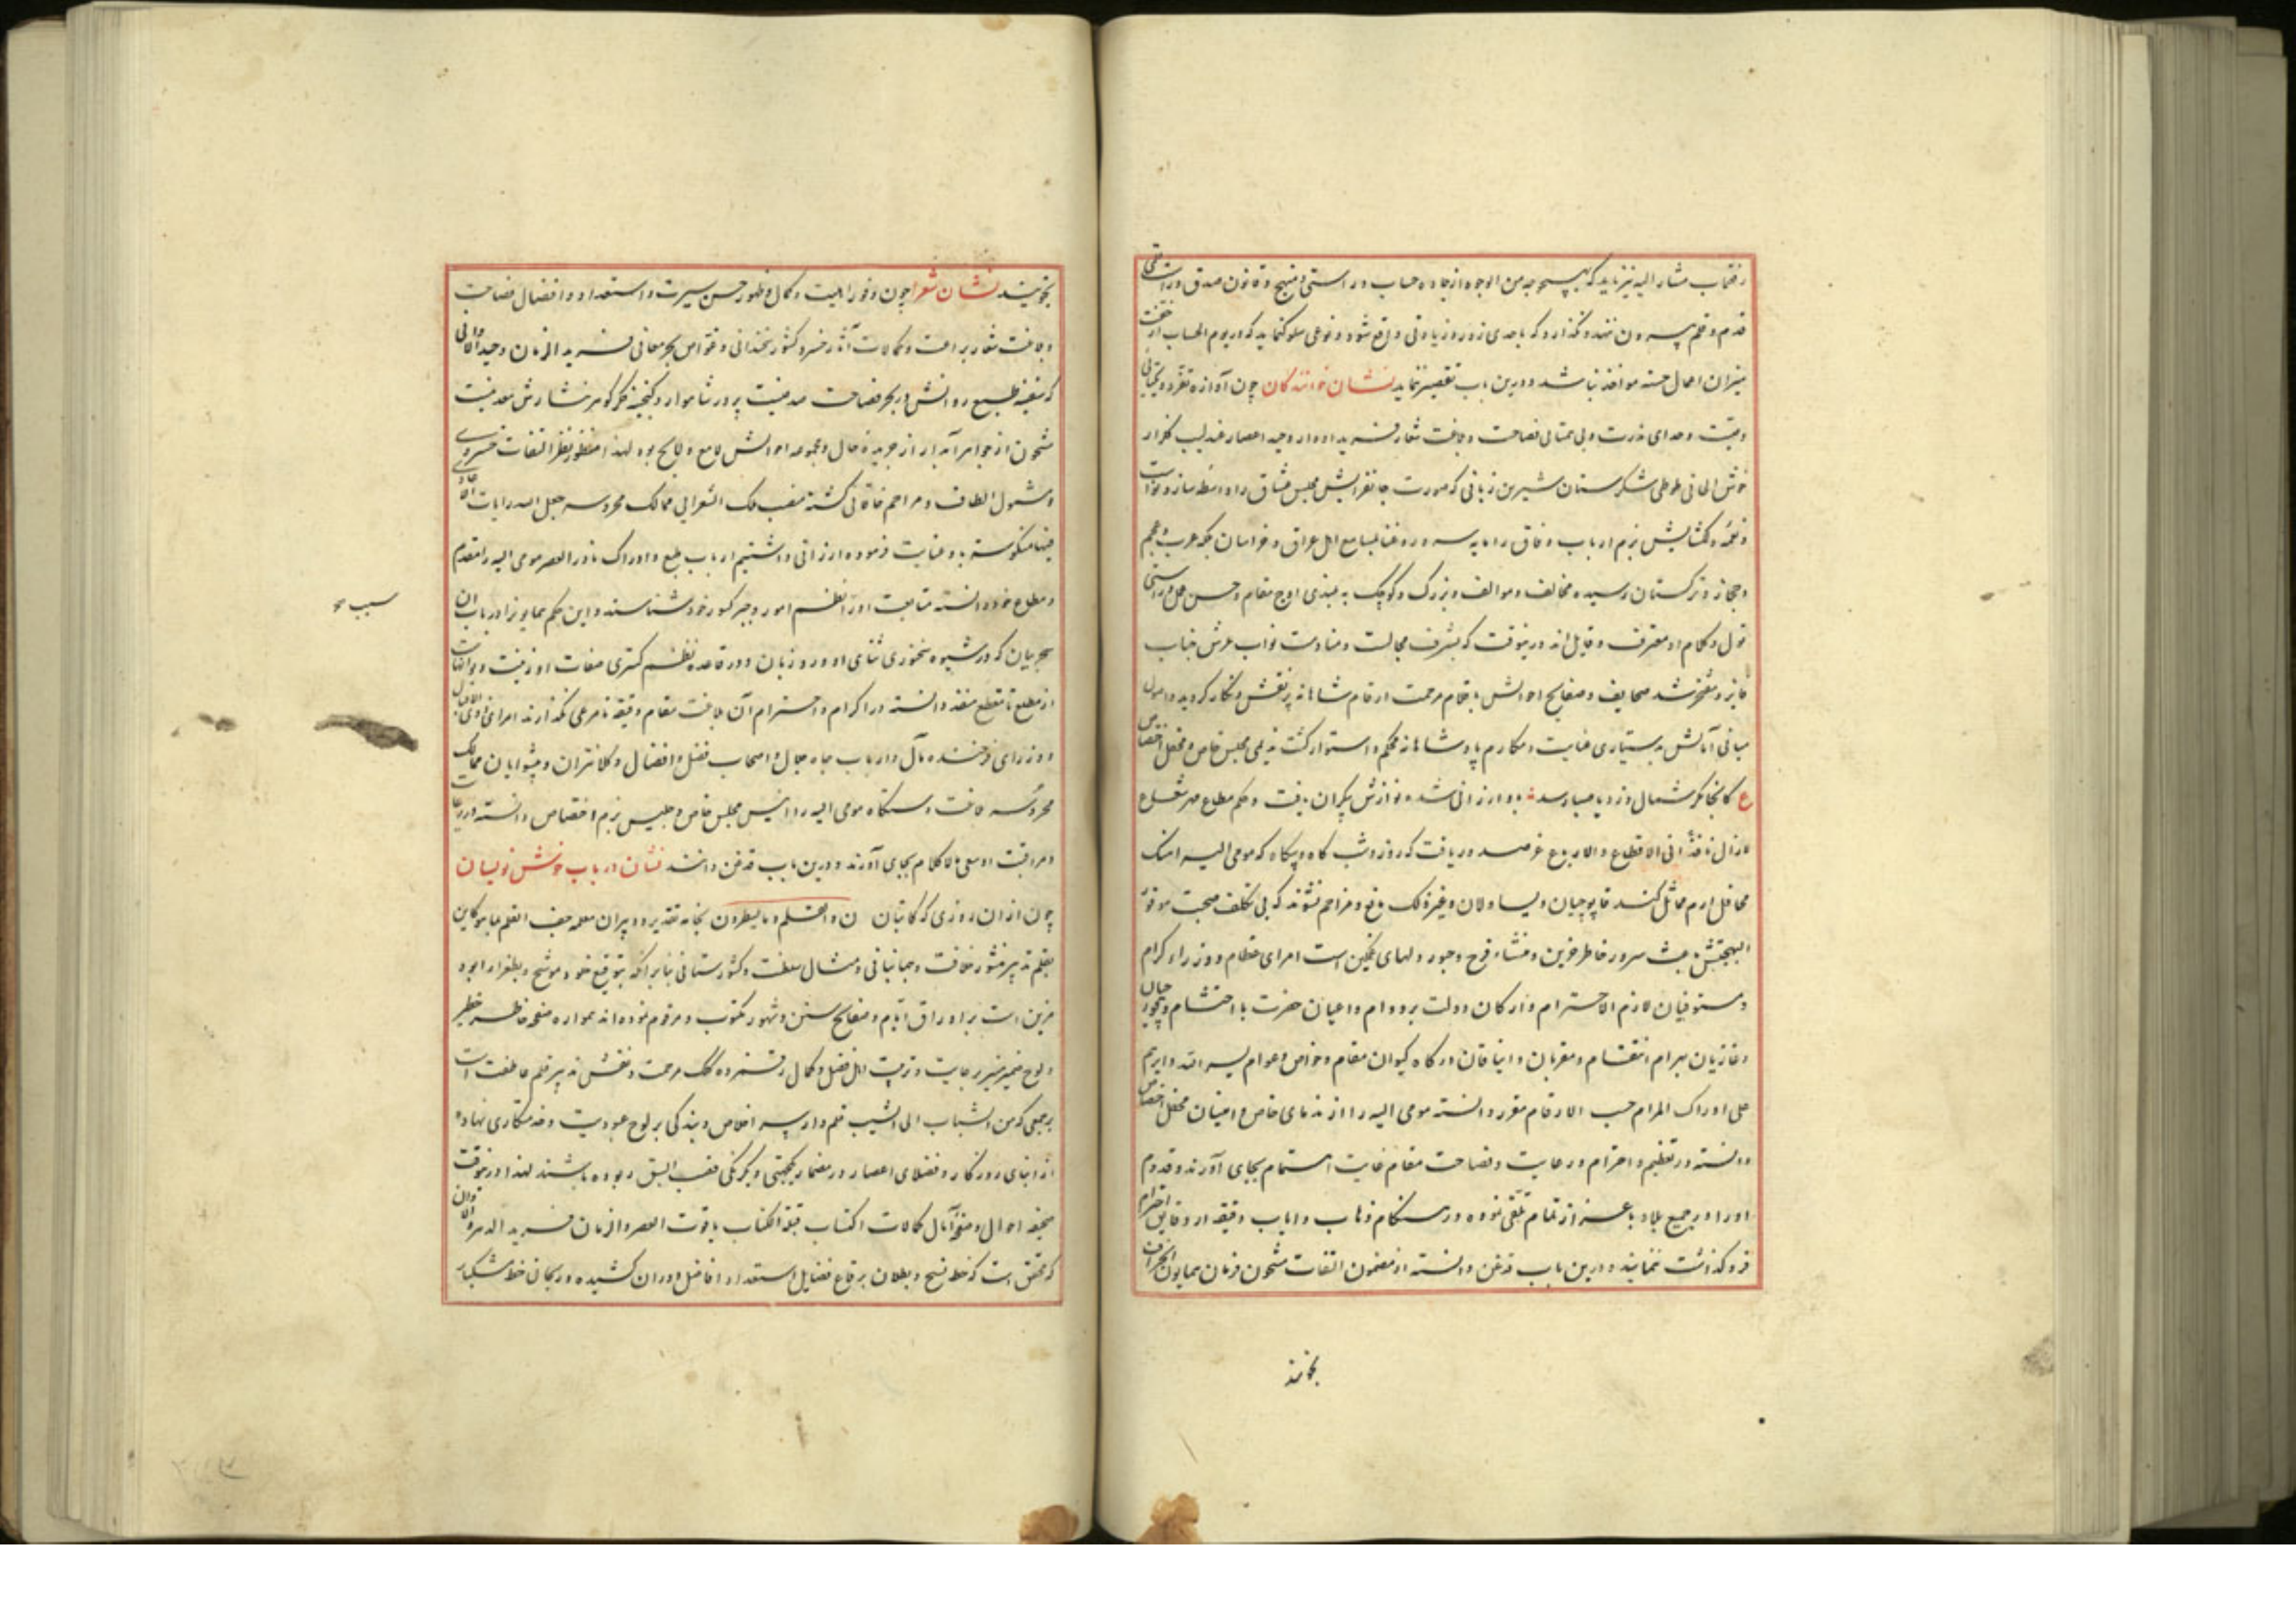 مشار الیه نیز باید که بهیچوجه من الوجوه از جاده حساب و راستی و منهج و قانون صدق و راستی
قدم و قلم بیرون ننهد و نگذارد که باحدی زور و زیادتی واقع شود و نوعی سلوک نماید که در یوم الحساب از خفت
میزان اعمال حسنه مواخذ نباشد و درین باب تقصیر ننماید نشان خوانندگان چون آوازه تفرد و یکتایی
وصیت و بی همتایی فصاحت و بلاغت شعار فرید ادوار وحید اعصار عندلیب گلزار
خوش الحانی طوطی شکرستان شیرین زبانی که صورت جانفزایش مجلس عشاق را واسطه ساز و نواست
و نغمه دلگشایش بزم ارباب وفاق را مایه بمسامع اهل عراق و خراسان بلکه عرب و عجم
و حجاز و ترکستان رسیده مخالف و موالف و بزرگ و کوچک به بلندی اوج مقام و حسن عمل و راستی
قول و کلام او معترف و قایل اند درینوقت که بشرف مجالست و منادمت نواب عرش جناب
فایز و مفتخر شد صحایف و صفایح احوالش باقلام مرحمت ارقام شاهانه پر نقش و نگار گردید و اصول
مبانی آمالش بدستیاری عنایت و مکارم پادشاهانه محکم و استوار گشت ندیمی مجلس خاص و محفل اختصاص
ع کانجا مگر شمال وزد یا صبا رسد باو ارزانی شد و نوازش بیکران یافت و حکم مطاع مهر شعاع
لازال نافذا فی الاقطاع و الارباع عز صدور یافت که روز و شب گاه و بیگاه که مومی الیه آهنگ
محافل ارم مماثل کند قاپوچیان و یساولان و غیر ذلک مانع و مزاحم نشوند که بی تکلف صحبت موفور
البهجتش باعث سرور خاطر حزین و منشاء فرح و حبور دلهای غمگین است امرای عظام و وزراء کرام
و مستوفیان لازم الاحترام و ارکان دولت بر دوام و اعیان حضرت با احتشام و
و غازیان بهرام انتقام و مقربان و ایناقان درگاه کیوان مقام و خواص و عوام یسر الله و ایاهم
علی ادراک المرام حسب الارقام مقرر دانسته مومی الیه را از ندمای خاص و امینان محفل اختصاص
دانسته در تعظیم و احترام و رعایت فصاحت مقام غایت اهتمام بجای آورند و قدوم
او را در جمیع بلاد باعزاز تمام تلقی نموده در هنگام ذهاب و ایاب دقیقه از دقایق احترام
فروگذاشت ننمایند و درین باب قدغن دانسته از مضمون التفات مشحون فرمان همایون انحراف
نجویند
نجویند نشان شعرا چون وفور اهلیت و کمال و ظهور حسن سیرت و استعداد و افضال فصاحت
و بلاغت شعار براعت و کمالات آثار خسرو کشور سخندانی و غواص بحر معانی فرید الزمان وحید الاوانی
که سفینه طبع روانش در بحر فصاحت صدفیست پر در شاهوار و گنجینه فکر گوهر نثارش معدنیست
مشحون از جواهر آبدار از جریده حال و مجموعه احوالش لامع و لایح بود لهذا منظور نظر التفات خسروی
و مشمول الطاف و مراحم خاقانی گشته منصب ملک الشعرایی ممالک محروسه جعل الله رایات
باو عنایت فرموده ارزانی داشتیم ارباب طبع و ادراک نادر العصر مومی الیه را مقدم
و مطاع خود دانسته متابعت او را اعظم امور و خود شناسند و این حکم همایون را در باب آن
سحر بیان که در شیوه سخنوری ثنای او ورد زبان و در قاعده نظم گستری صفات او زینت
از مطلع تا مقطع منعقد دانسته در اکرام و احترام آن بلاغت مقام دقیقه نامرعی نگذارند امرای
و وزرای فرخنده مآل و ارباب جاه و جلال و اصحاب فضل و افضال و کلانتران و پیشوایان ممالک
محروسه بلاغت دستگاه مومی الیه را انیس مجلس خاص و جلیس بزم اختصاص دانسته در رعایت
و مراقبت او سعی لاکلام بجای آورند و درین باب قدغن دانند نشان در باب خوش نویسان
چون از آن روزی که کاتبان ن والقلم و ما یسطرون بخامه تقدیر و دبیران معلمه جف القلم بما هو کاین
بقلم تدبیر منشور خلافت و جهانبانی و مثال سلطنت و کشورستانی بنابر آنکه بتوقیع موشح و بطغرا
مزین است بر اوراق ایام و صفایح سنین و شهور مکتوب و مرقوم نموده اند همواره صفحه خاطر خطیر
و لوح ضمیر منیر رعایت و تربیت اهل فضل و کمال رقم زده کلک مرحمت و نقش پذیر قلم عاطفت است
بر جمعی که من الشباب الی الشیب قلم وار سر اخلاص و بندگی بر لوح عبودیت و خدمتکاری نهاده
از ابنای روزگار و فضلای اعصار در مضمار یکجهتی و یکرنگی قصب السبق ربوده باشند لهذا درینوقت
صحیفه احوال و صفحه آمال کمالات اکتساب قبلة الکتاب یاقوت العصر و الزمان فرید الدهر و الاوان
که محقق است که خط نسخ و بطلان بر رقاع فضایل و استعداد افاضل دوران کشیده و ریحان خط مشکبار